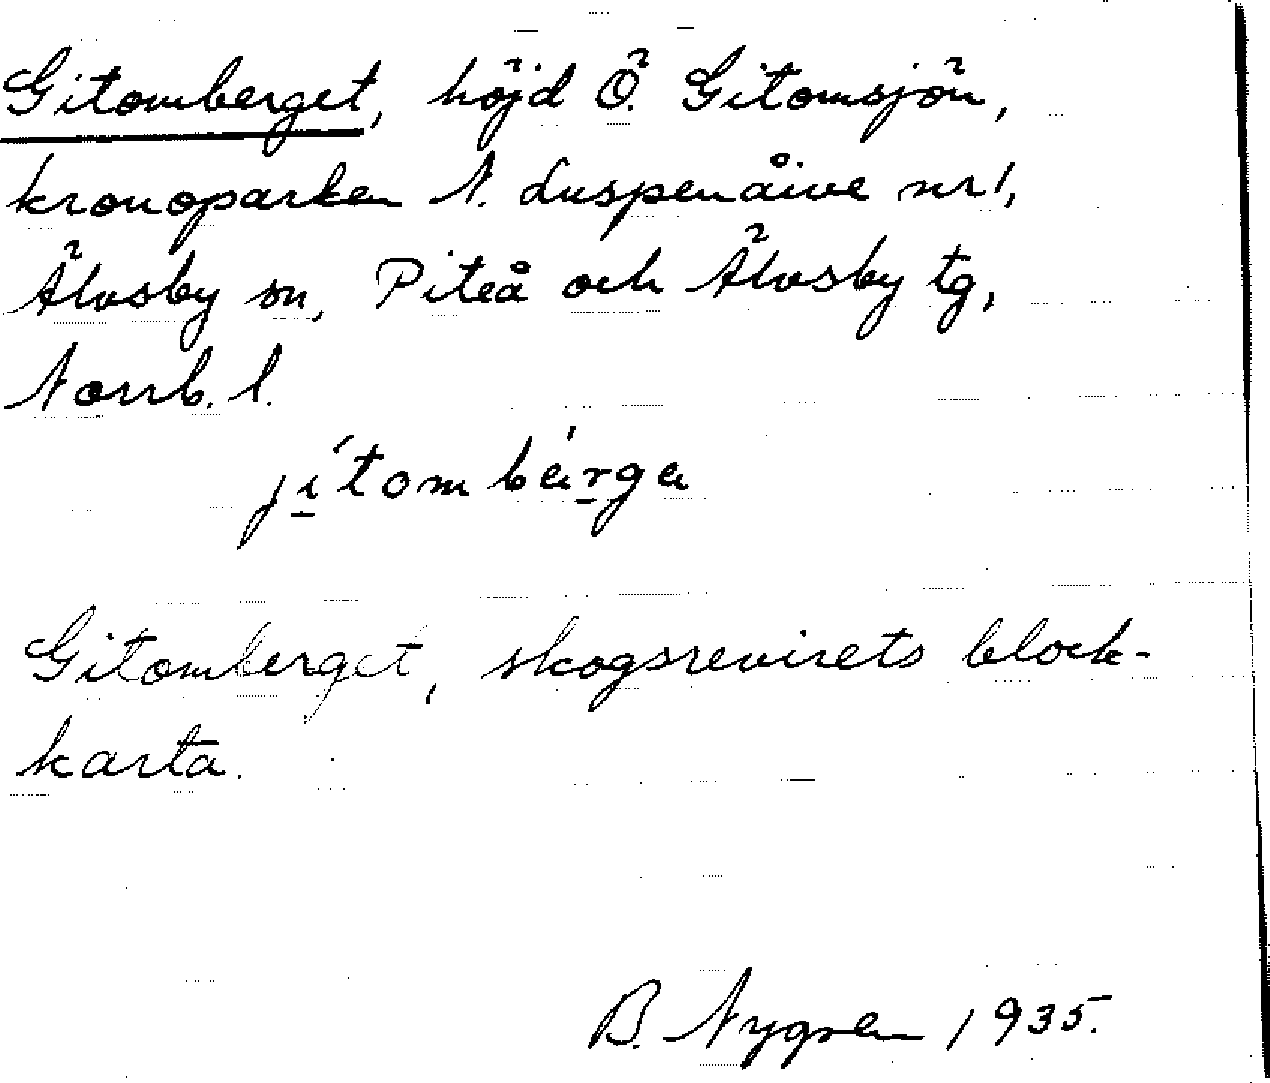 Gitomberget, höjd Ö. Gitomsjön,
kronoparken N. Luspenåive nr 1,
Älvsby sn, Piteå och Älvsby tg,
Norrb. l.
jítom bárga
Gitomberget, skogsrevirets block-
karta.
B. Nygren 1935.